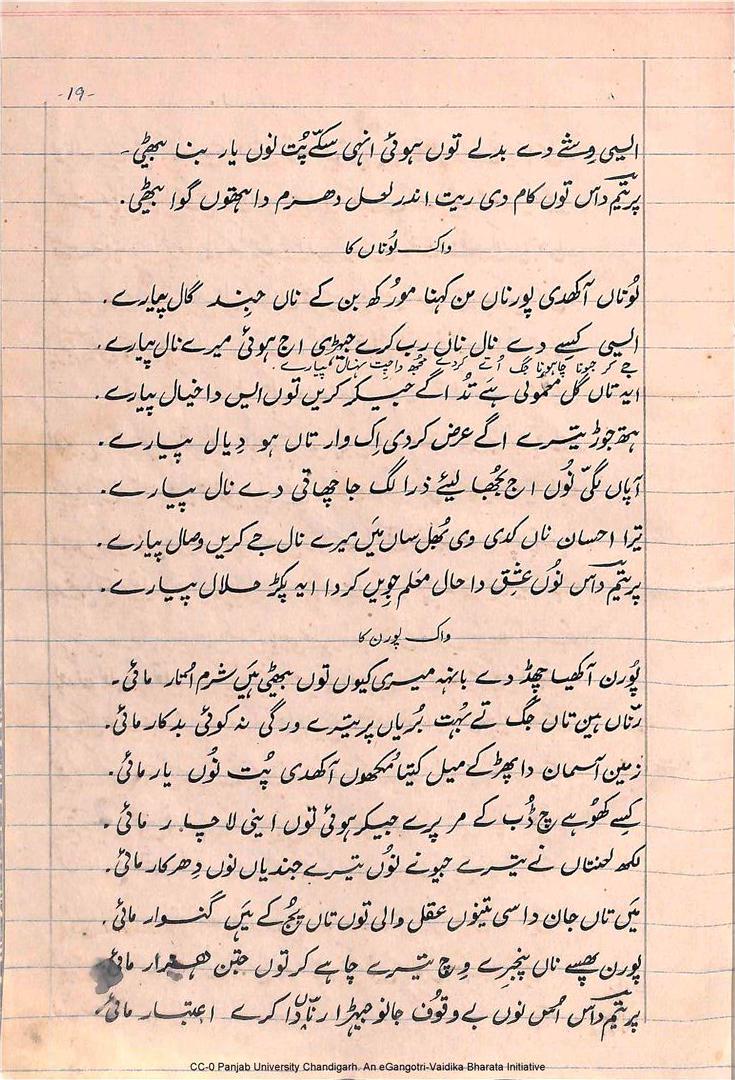 -19-
ایسی وشے دے بدلے توں ہوئی انہی سکے پُت نوں یار بنا بیٹھی۔
پریتم داس توں کام دی ریت اندر لعل دھرم دا ہتھوں گوا بیٹھی۔
واک لُوناں کا
لُوناں آکھدی پورناں من کہنا مورکھ بن کے ناں جِند گال پیارے۔
ایسی کسے دے نال ناں رب کرے جیہڑی اج ہوئی میرے نال پیارے۔
جے کر جونا چاہونا جگ اُتے کردے مجھ دا چِت نہال پیارے۔
ایہ تاں گل معمولی ہے تُد اگے جیکر کریں توں ایس دا خیال پیارے۔
ہتھ جوڑ تیرے اگے عرض کردی اِک وار تاں ہو دِیال پیارے۔
آپاں لگی نُوں اج بُجھا لیئے ذرا لگ جا چھاتی دے نال پیارے۔
تیرا احسان ناں کدی وی بُھل ساں مَیں میرے نال جے کریں وصال پیارے۔
پریتم داس نُوں عشق دا حال معلم جویں کردا ایہ پکڑ حلال پیارے۔
واک پورن کا
پُورن آکھیا چھڈ دے بانہہ میری کیوں توں بیٹھی ہیں شرم اُتار مائی۔
رنّاں ہین تاں جگ تے بُہت بُریاں پر تیرے ورگی نہ کوئی بدکار مائی۔
زمین آسمان دا پھڑ کے میل کیتا مُکھوں آکھدی پُت نُوں یار مائی۔
کِسے کھُوہے وچ ڈُب کے مر پرے جیکر ہوئی توں اینی لاچار مائی۔
لکھ لعنتاں نے تیرے جیونے نُوں تیرے جندیاں نوں دِھرکار مائی۔
مَیں تاں جان دا سی تینُوں عقل والی توں تاں پُج کے ہَیں گنوار مائی۔
پورن پھسے ناں پنجرے وِچ تیرے چاہے کر توں جتن ہزار مائی۔
پریتم داس اُس نوں بے وقوف جانو جیہڑا رنّاں دا کرے اعتبار مائی۔
CC-0 Panjab University Chandigarh. An eGangotri-Vaidika Bharata Initiative